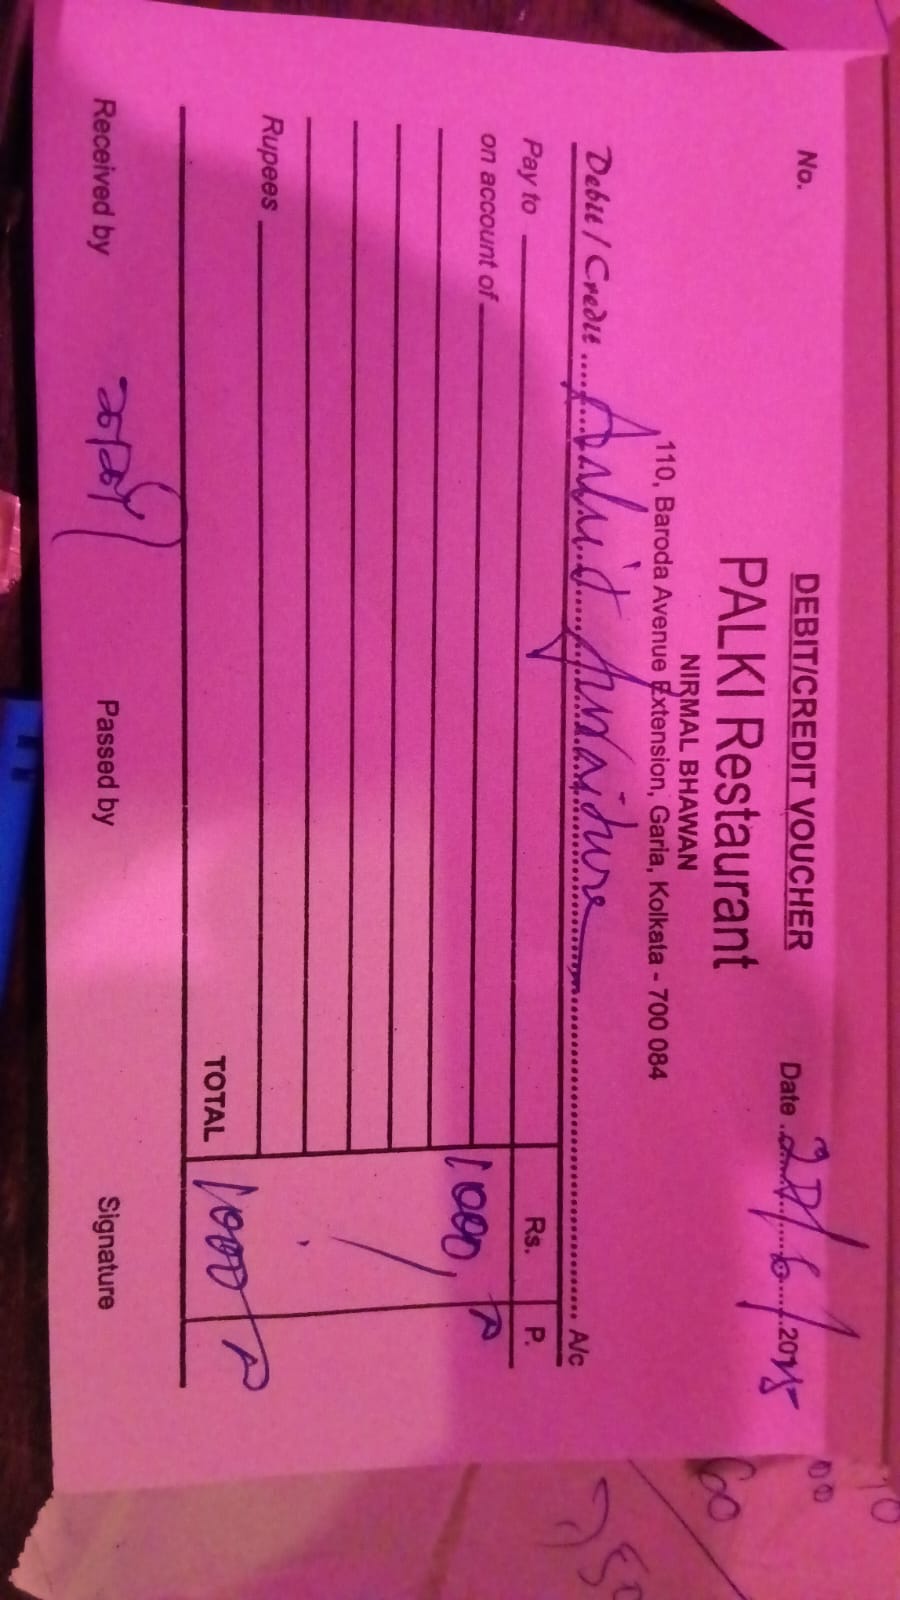 DEBIT/CREDIT VOUCHER
No.
Date 2025
PALKI Restaurant
NIRMAL BHAWAN
110, Baroda Avenue Extension, Garia, Kolkata - 700 084
Debit / Credit A/c
Pay to Rs. P.
on account of 1000
Rupees
TOTAL 1000
Received by Passed by Signature
60
00